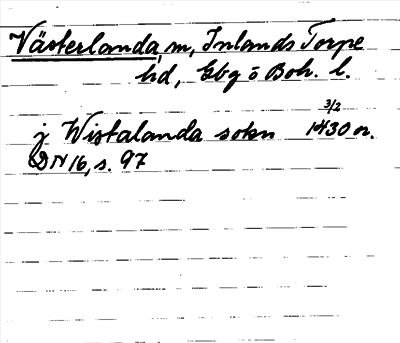 Västerlanda, sn, Inlands Torpe
hd, Gbg o Boh. l.
j Wistalanda sokn 3/2 1430 or.
DN 16, s. 97